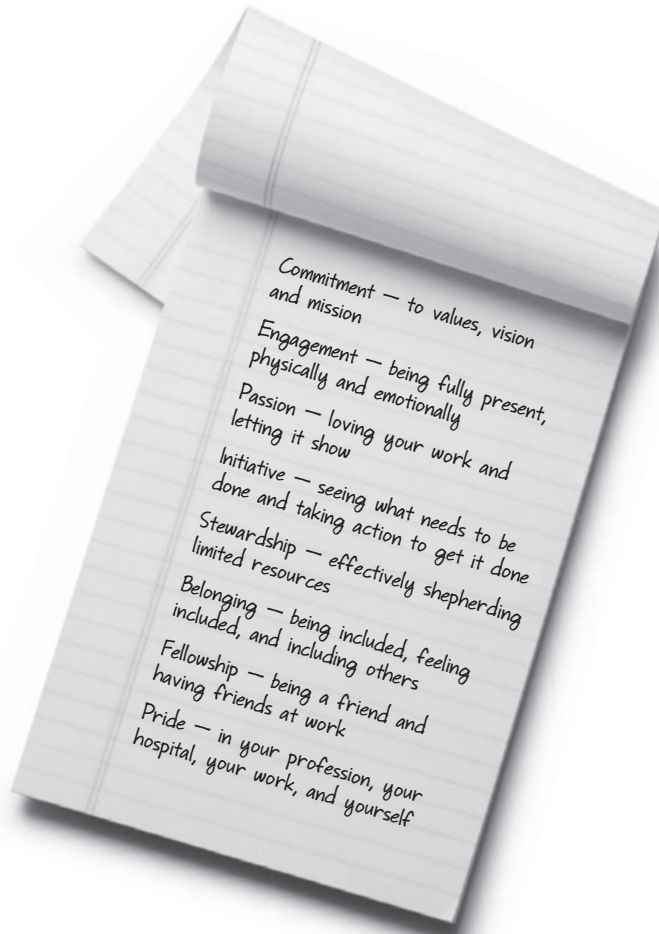 Commitment — to values, vision
and mission
Engagement — being fully present,
physically and emotionally
Passion — loving your work and
letting it show
Initiative — seeing what needs to be
done and taking action to get it done
Stewardship — effectively shepherding
limited resources
Belonging — being included, feeling
included, and including others
Fellowship — being a friend and
having friends at work
Pride — in your profession, your
hospital, your work, and yourself